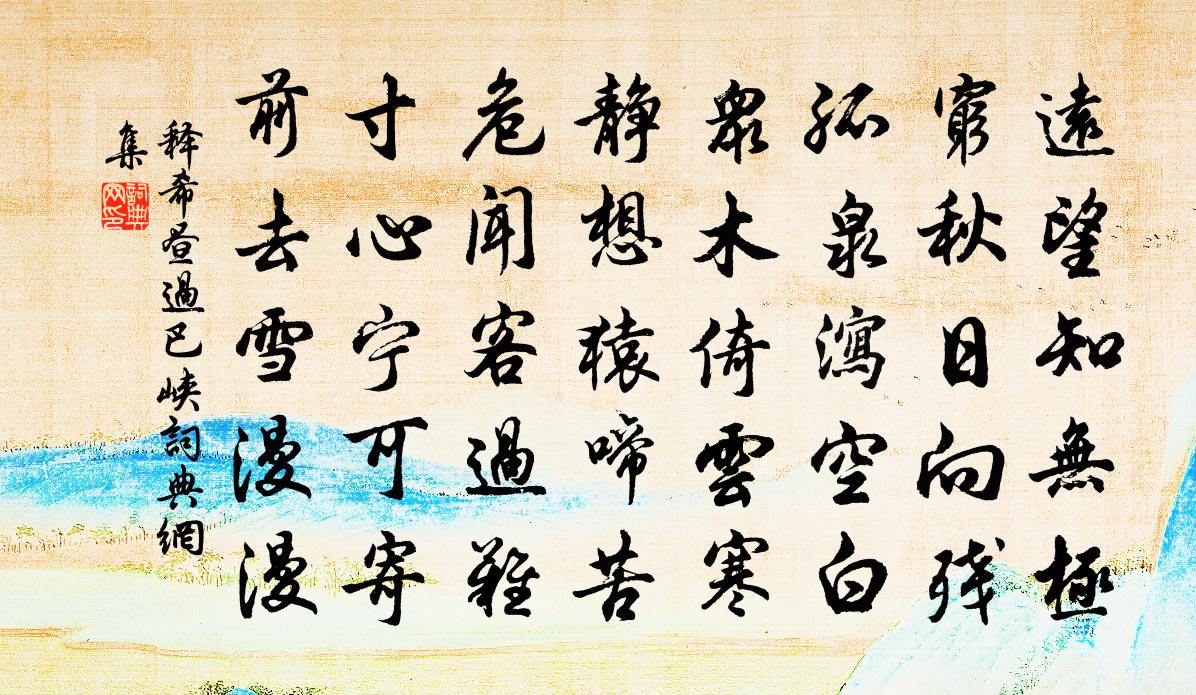 遠望知無極
窮秋日向残
孤泉瀉空白
眾木倚雲寒
靜想猿啼苦
危聞客過難
寸心宁可寄
前去雪漫漫
释希昼過巴峡詞典網
集
詞典网印